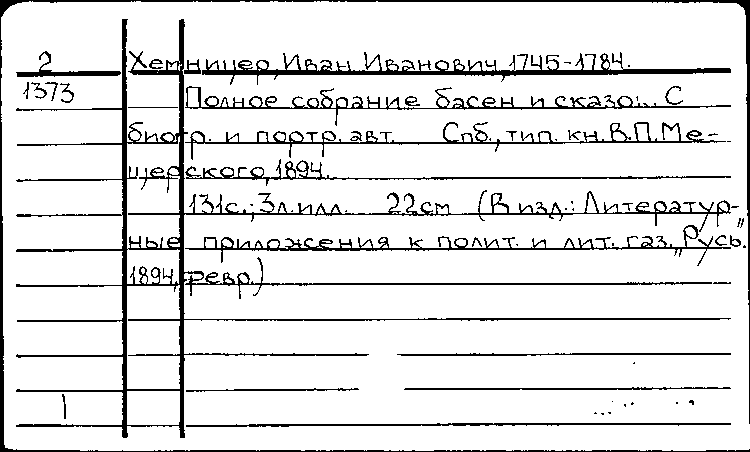 2 Хемницер, Иван Иванович, 1745-1784.
1373 Полное собрание басен и сказо... С
биогр. и портр. авт. Спб., тип. кн. В.П.Ме-
щерского, 1894.
131с.; 3л.илл. 22см (В изд.: Литератур-
ные приложения к полит. и лит. газ. „Русь"
1894, февр.)
1